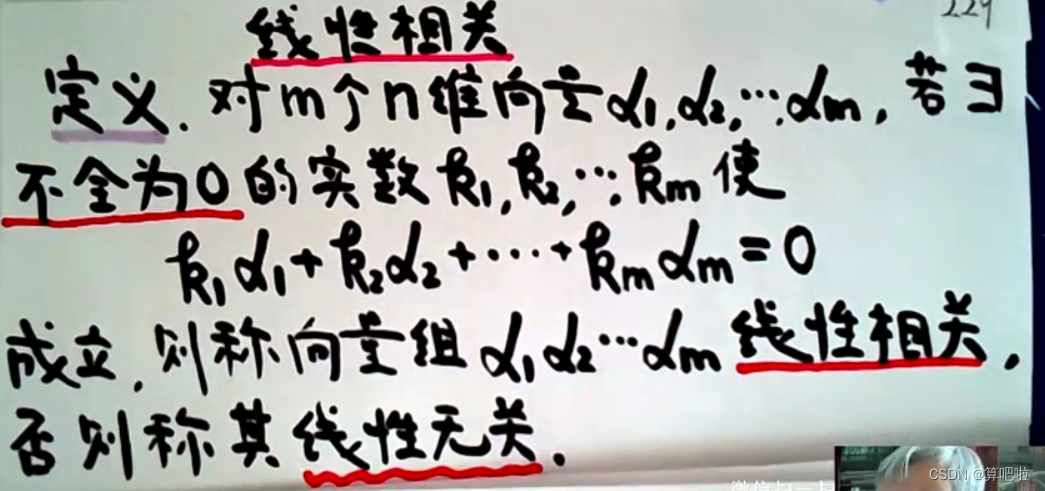 229
线性相关
定义. 对m个n维向量α1,α2,…,αm, 若∃
不全为0的实数k1,k2,…,km使
k1α1+k2α2+⋯+kmαm=0
成立, 则称向量组α1α2…αm线性相关,
否则称其线性无关.
CSDN @算吧啦